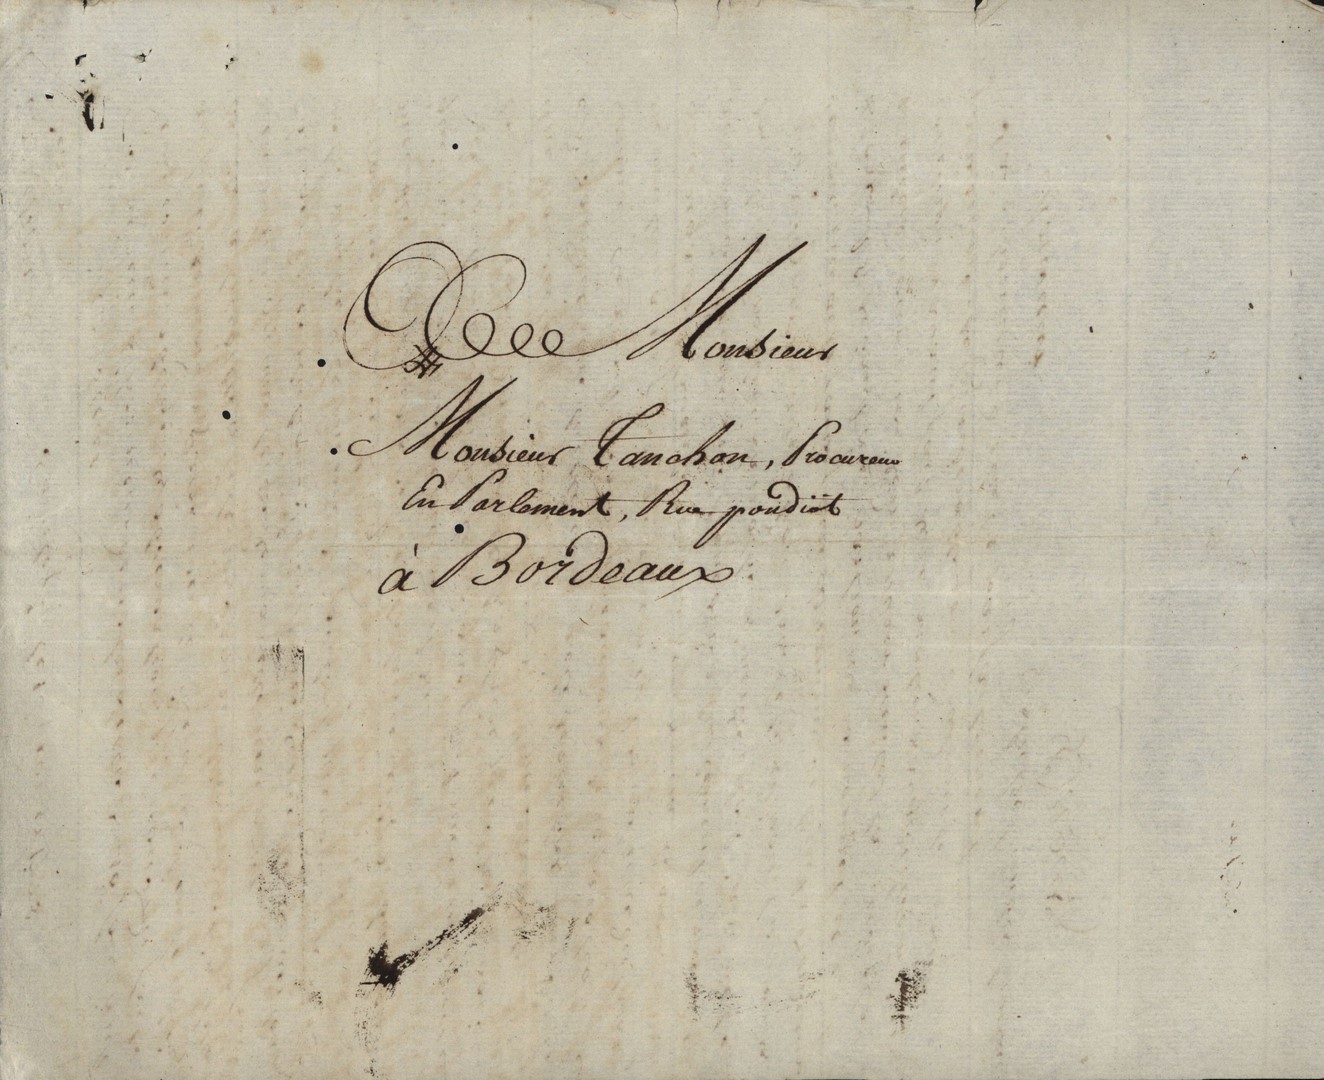 Monsieur
Monsieur Tanchon, Procureur
En Parlement, Rue poudiot
à Bordeaux